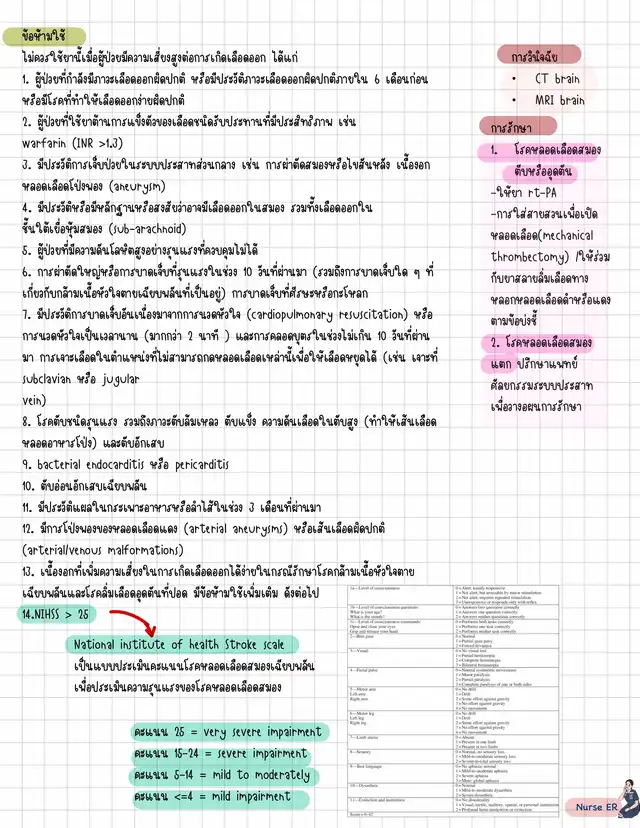 ข้อห้ามใช้
ไม่ควรใช้ยานี้เมื่อผู้ป่วยมีความเสี่ยงสูงต่อการเกิดเลือดออก ได้แก่
1. ผู้ป่วยที่กำลังมีภาวะเลือดออกผิดปกติ หรือมีประวัติภาวะเลือดออกผิดปกติภายใน 6 เดือนก่อน
หรือมีโรคที่ทำให้เลือดออกง่ายผิดปกติ
2. ผู้ป่วยที่ใช้ยาต้านการแข็งตัวของเลือดชนิดรับประทานที่มีประสิทธิภาพ เช่น
warfarin (INR >1.3)
3. มีประวัติการเจ็บป่วยในระบบประสาทส่วนกลาง เช่น การผ่าตัดสมองหรือไขสันหลัง เนื้องอก
หลอดเลือดโป่งพอง (aneurysm)
4. มีประวัติหรือมีหลักฐานหรือสงสัยว่าอาจมีเลือดออกในสมอง รวมทั้งเลือดออกใน
ชั้นใต้เยื่อหุ้มสมอง (sub-arachnoid)
5. ผู้ป่วยที่มีความดันโลหิตสูงอย่างรุนแรงที่ควบคุมไม่ได้
6. การผ่าตัดใหญ่หรือการบาดเจ็บที่รุนแรงในช่วง 10 วันที่ผ่านมา (รวมถึงการบาดเจ็บใด ๆ ที่
เกี่ยวกับกล้ามเนื้อหัวใจตายเฉียบพลันที่เป็นอยู่) การบาดเจ็บที่ศีรษะหรือกะโหลก
7. มีประวัติการบาดเจ็บอันเนื่องมาจากการนวดหัวใจ (cardiopulmonary resuscitation) หรือ
การนวดหัวใจเป็นเวลานาน (มากกว่า 2 นาที ) และการคลอดบุตรในช่วงไม่เกิน 10 วันที่ผ่าน
มา การเจาะเลือดในตำแหน่งที่ไม่สามารถกดหลอดเลือดเหล่านี้เพื่อให้เลือดหยุดได้ (เช่น เจาะที่
subclavian หรือ jugular
vein)
8. โรคตับชนิดรุนแรง รวมถึงภาวะตับล้มเหลว ตับแข็ง ความดันเลือดในตับสูง (ทำให้เส้นเลือด
หลอดอาหารโป่ง) และตับอักเสบ
9. bacterial endocarditis หรือ pericarditis
10. ตับอ่อนอักเสบเฉียบพลัน
11. มีประวัติแผลในกระเพาะอาหารหรือลำไส้ในช่วง 3 เดือนที่ผ่านมา
12. มีการโป่งพองของหลอดเลือดแดง (arterial aneurysms) หรือเส้นเลือดผิดปกติ
(arterial/venous malformations)
13. เนื้องอกที่เพิ่มความเสี่ยงในการเกิดเลือดออกได้ง่ายในกรณีรักษาโรคกล้ามเนื้อหัวใจตาย
เฉียบพลันและโรคลิ่มเลือดอุดตันที่ปอด มีข้อห้ามใช้เพิ่มเติม ดังต่อไป
14.NIHSS > 25
National institute of health Stroke scale
เป็นแบบประเมินคะแนนโรคหลอดเลือดสมองเฉียบพลัน
เพื่อประเมินความรุนแรงของโรคหลอดเลือดสมอง
คะแนน 25 = very severe impairment
คะแนน 15-24 = severe impairment
คะแนน 5-14 = mild to moderately
คะแนน <=4 = mild impairment
การวินิจฉัย
• CT brain
• MRI brain
การรักษา
1. โรคหลอดเลือดสมอง
ตีบหรืออุดตัน
-ให้ยา rt-PA
-การใส่สายสวนเพื่อเปิด
หลอดเลือด(mechanical
thrombectomy) /ให้ร่วม
กับยาสลายลิ่มเลือดทาง
หลอกหลอดเลือดดำหรือแดง
ตามข้อบ่งชี้
2. โรคหลอดเลือดสมอง
แตก ปรึกษาแพทย์
ศัลยกรรมระบบประสาท
เพื่อวางอผนการรักษา
Nurse ER